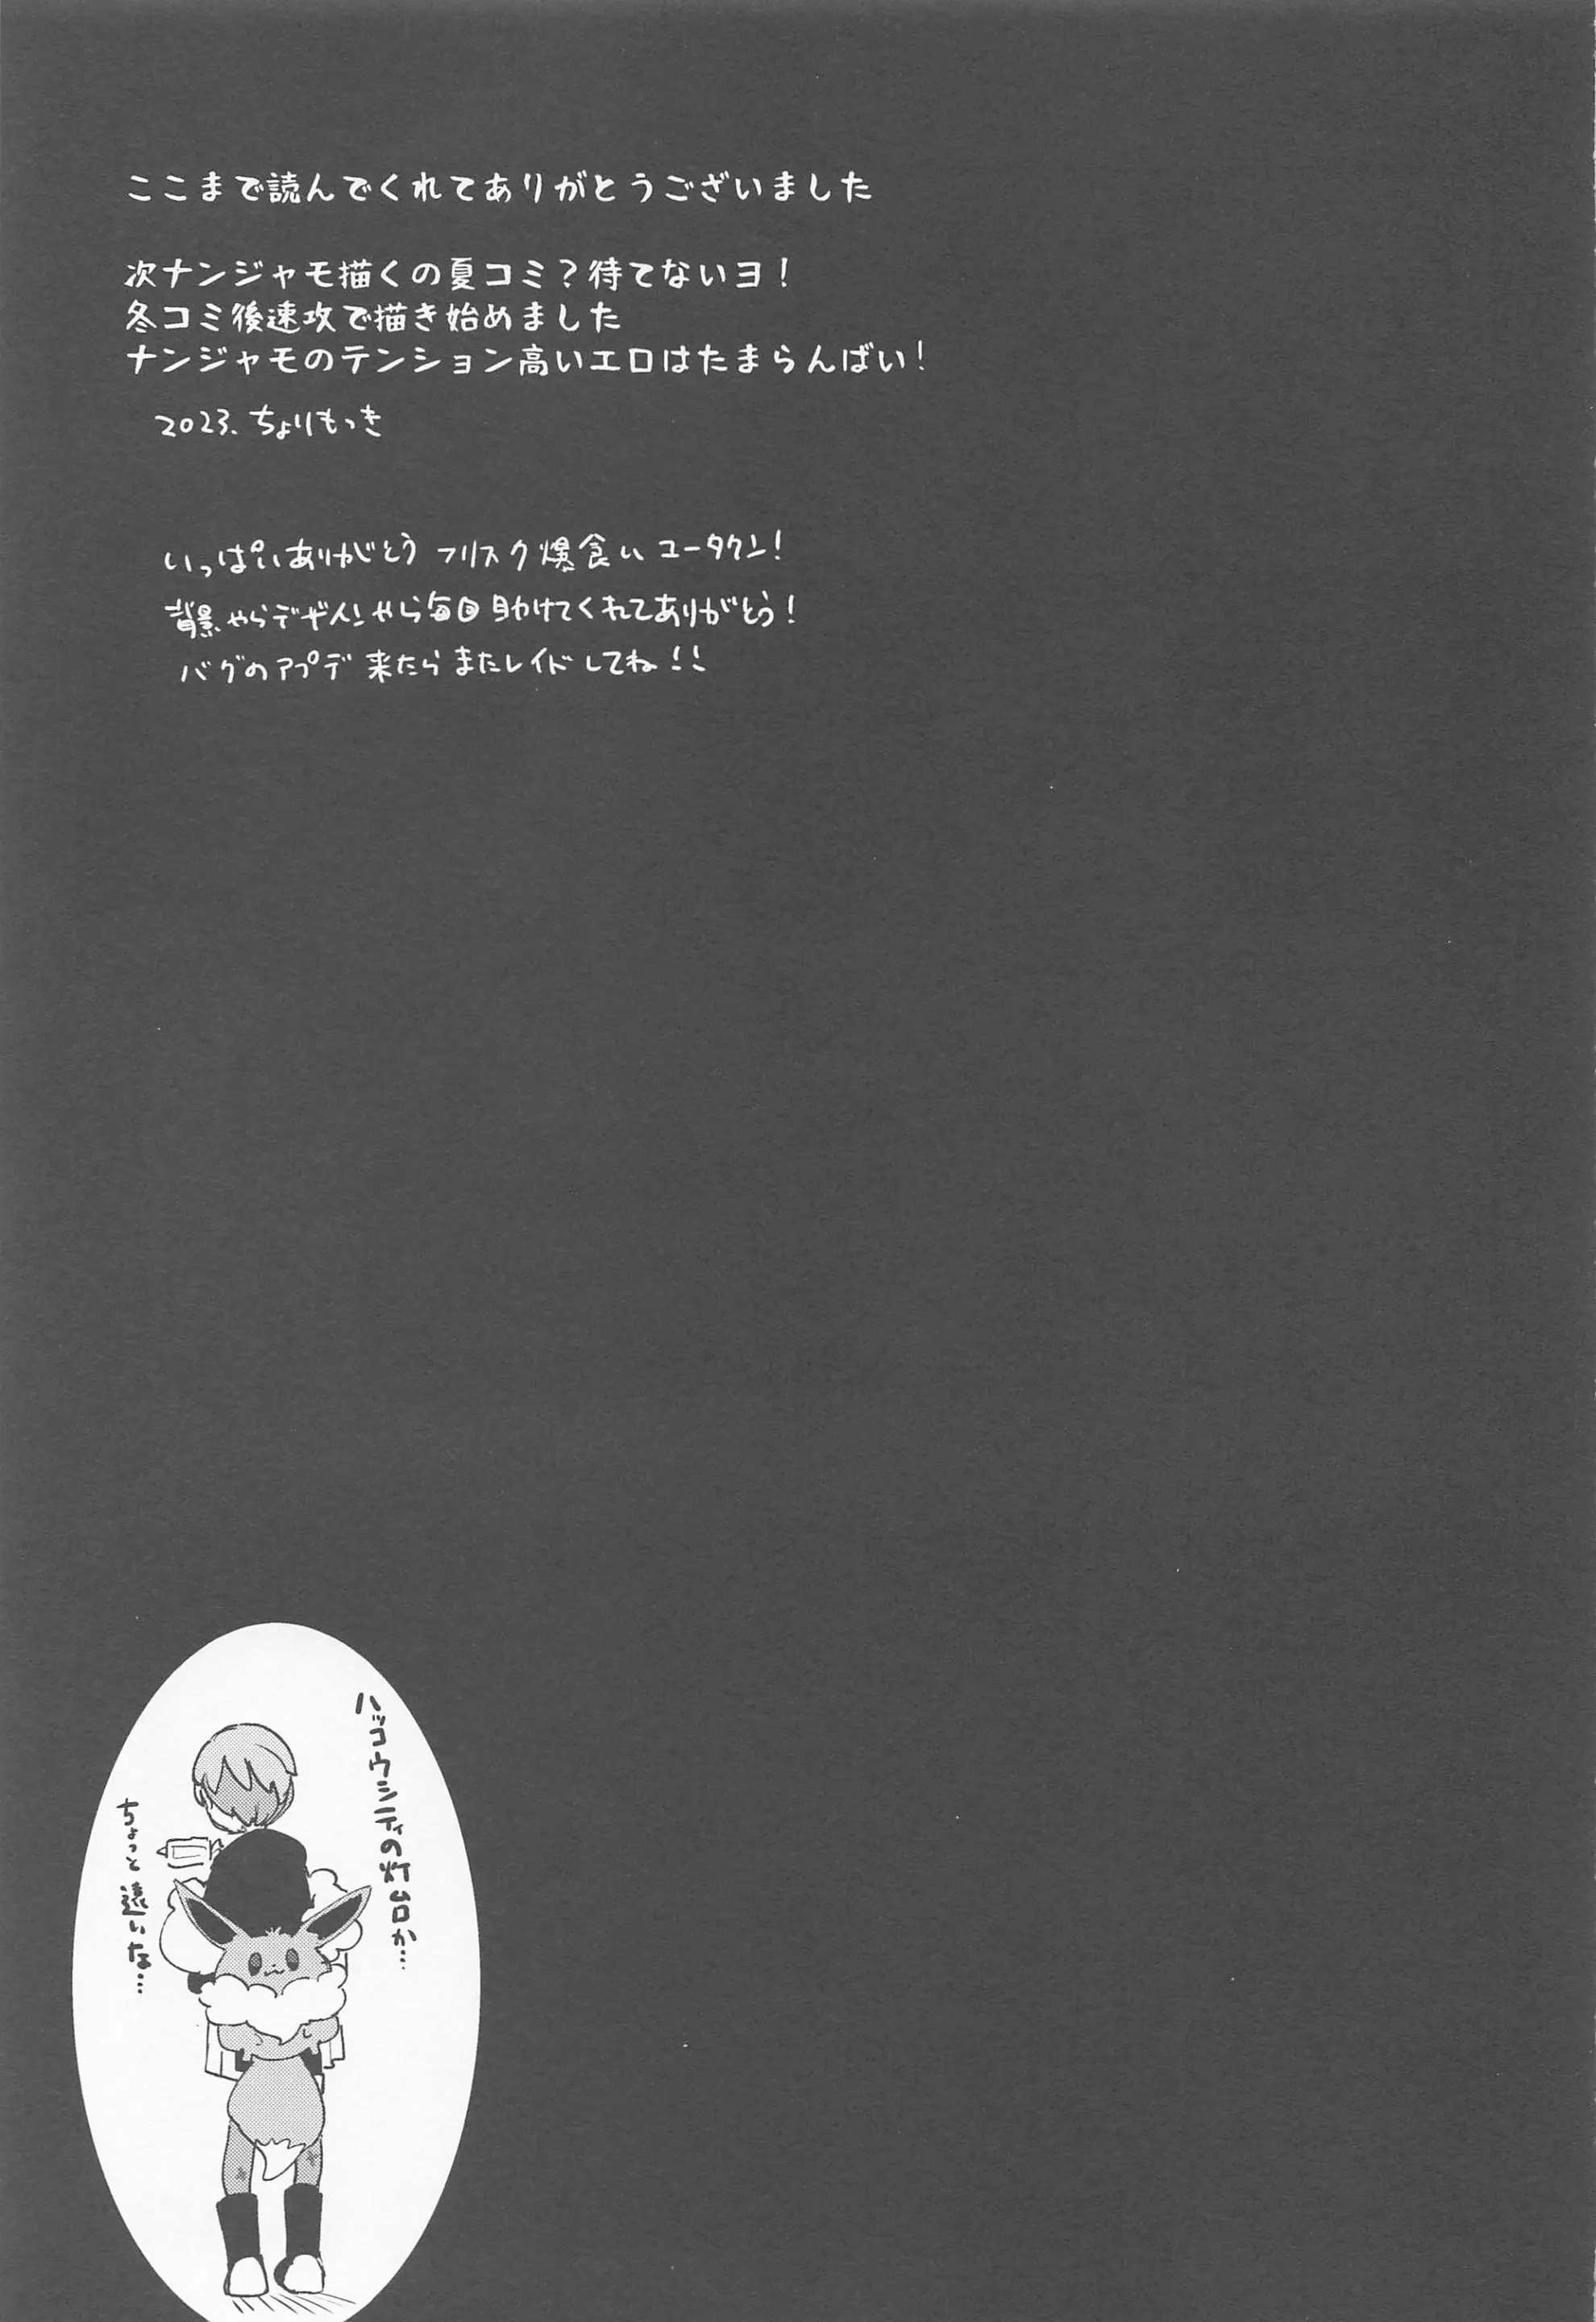 ここまで読んでくれてありがとうございました
次ナンジャモ描くの夏コミ？待てないヨ！
冬コミ後速攻で描き始めました
ナンジャモのテンション高いエロはたまらんばい！
2023. ちょりもっき
いっぱいありがとう フリスク爆食い ユータクン！
背景やらデザインやら毎回助けてくれてありがとう！
バグのアプデ 来たらまたレイドしてね！！
ハッコウシティの灯台か…
ちょっと遠いな…